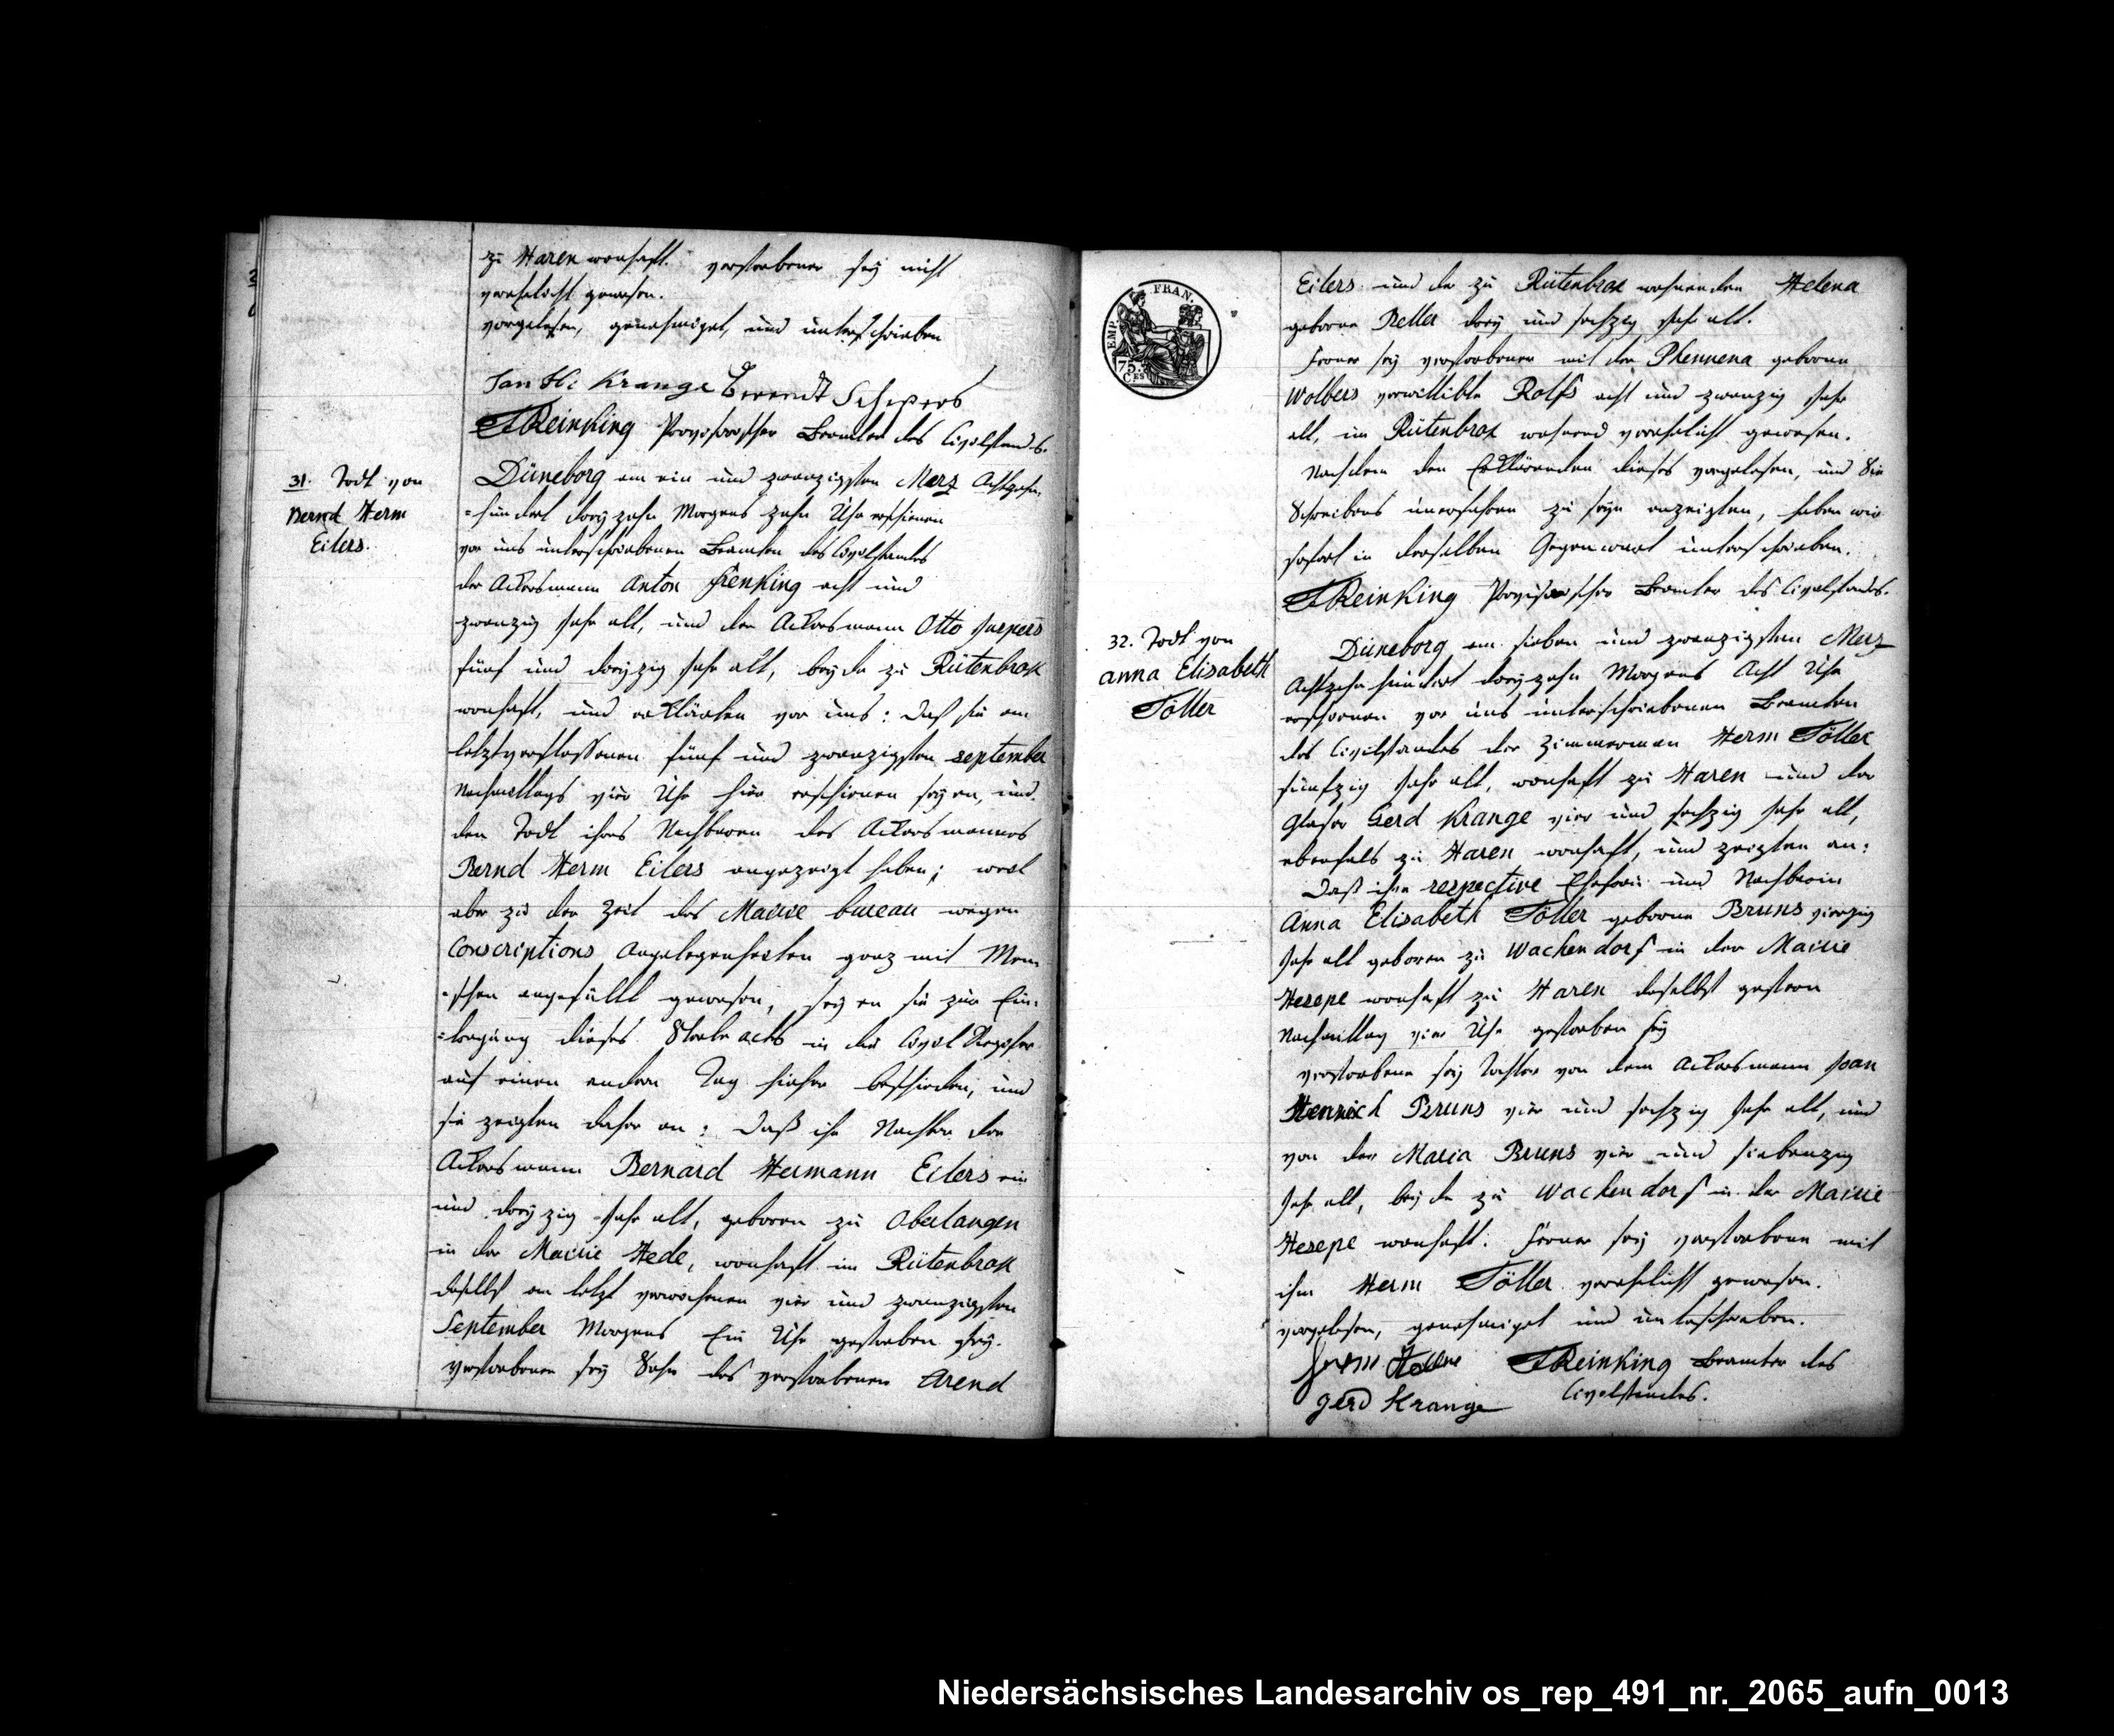 zu Haren wonhaft. verstorbener sey nicht
verehelicht gewesen.
vorgelesen, genehmiget, und unterschrieben
Jan Hi Krange Berendt Schepers
Reinking Provisorischer Beamter des Civilstands.
31. Todt von
Bernd Herm
Eilers.
Düneborg am ein und zwanzigsten Merz Achtzehn
=hundert dreyzehn Morgens zehn Uhr erschienen
vor uns unterschriebenen Beamten des Civilstandes
der Ackersmann Anton Frenking acht und
zwanzig Jahr alt, und der Ackersmann Otto Jaspers
fünf und dreyzig Jahr alt, beyde zu Rütenbrok
wonhaft, und erklärten vor uns: daß sie am
letztverflossenen fünf und zwanzigsten september
Nachmittags vier Uhr hier erschienen seyen, und
den Todt ihres Nachbaren des Ackersmannes
Bernd Herm Eilers angezeigt haben; weil
aber zu der Zeit das Mairie bureau wegen
Conscriptions Angelegenheiten ganz mit Men
=schen angefüllt gewesen, seyen sie zur Ein=
=tragung dieses Sterb acts in die Civil Register
auf einen andern Tag hieher beschieden, und
sie zeigten daher an: Daß ihr Nachbar der
Ackersmann Bernard Hermann Eilers ein
und dreyzig Jahr alt, geboren zu Oberlangen
in der Mairie Hede, wonhaft im Rütenbrok
daselbst am letzt verwichenen vier und zwanzigsten
September Morgens Ein Uhr gestorben sey.
Verstorbener sey Sohn des verstorbenen Arend
EMP. FRAN.
75. Ces
Eilers und der zu Rütenbrok wohnenden Helena
geborne Reller drey und sechzig Jahr alt.
Ferner sey verstorbener mit der Phennena geborne
Wolbers verwittibte Rolfs acht und zwanzig Jahr
alt, im Rütenbrok wohnend verehelicht gewesen.
Nachdem den Erklärenden dieses vorgelesen, und Sie
Schreibens unerfahren zu seyn anzeigten, haben wir
sofort in derselben Gegenwart unterschrieben.
Reinking Provisorischer Beamter des Civilstands.
32. Todt von
anna Elisabeth
Töller
Düneborg am sieben und zwanzigsten Merz
Achtzehnhundert dreyzehn Morgens Acht Uhr
erschienen vor uns unterschriebenen Beamten
des Civilstandes der Zimmerman Herm Töller
fünfzig Jahr alt, wonhaft zu Haren und der
Glaser Gerd Krange vier und sechzig Jahr alt,
ebenfals zu Haren wonhaft, und zeigten an:
Daß ihre respective Ehefrau und Nachbarin
Anna Elisabeth Töller geborne Bruns vierzig
Jahr alt geboren zu Wachendorf in der Mairie
Hesepe wonhaft zu Haren daselbst gestern
Nachmittag vier Uhr gestorben sey
verstorbene sey Tochter von dem Ackersmann Joan
Henrich Bruns vier und sechzig Jahr alt, und
von der Maria Bruns vier und siebenzig
Jahr alt, beyde zu Wachendorf in der Mairie
Hesepe wonhaft. Ferner sey verstorbene mit
ihm Herm Töller verehelicht gewesen.
vorgelesen, genehmiget und unterschrieben.
Herm Töller Reinking Beamter des
Gerd Krange Civilstandes.
Niedersächsisches Landesarchiv os_rep_491_nr._2065_aufn_0013